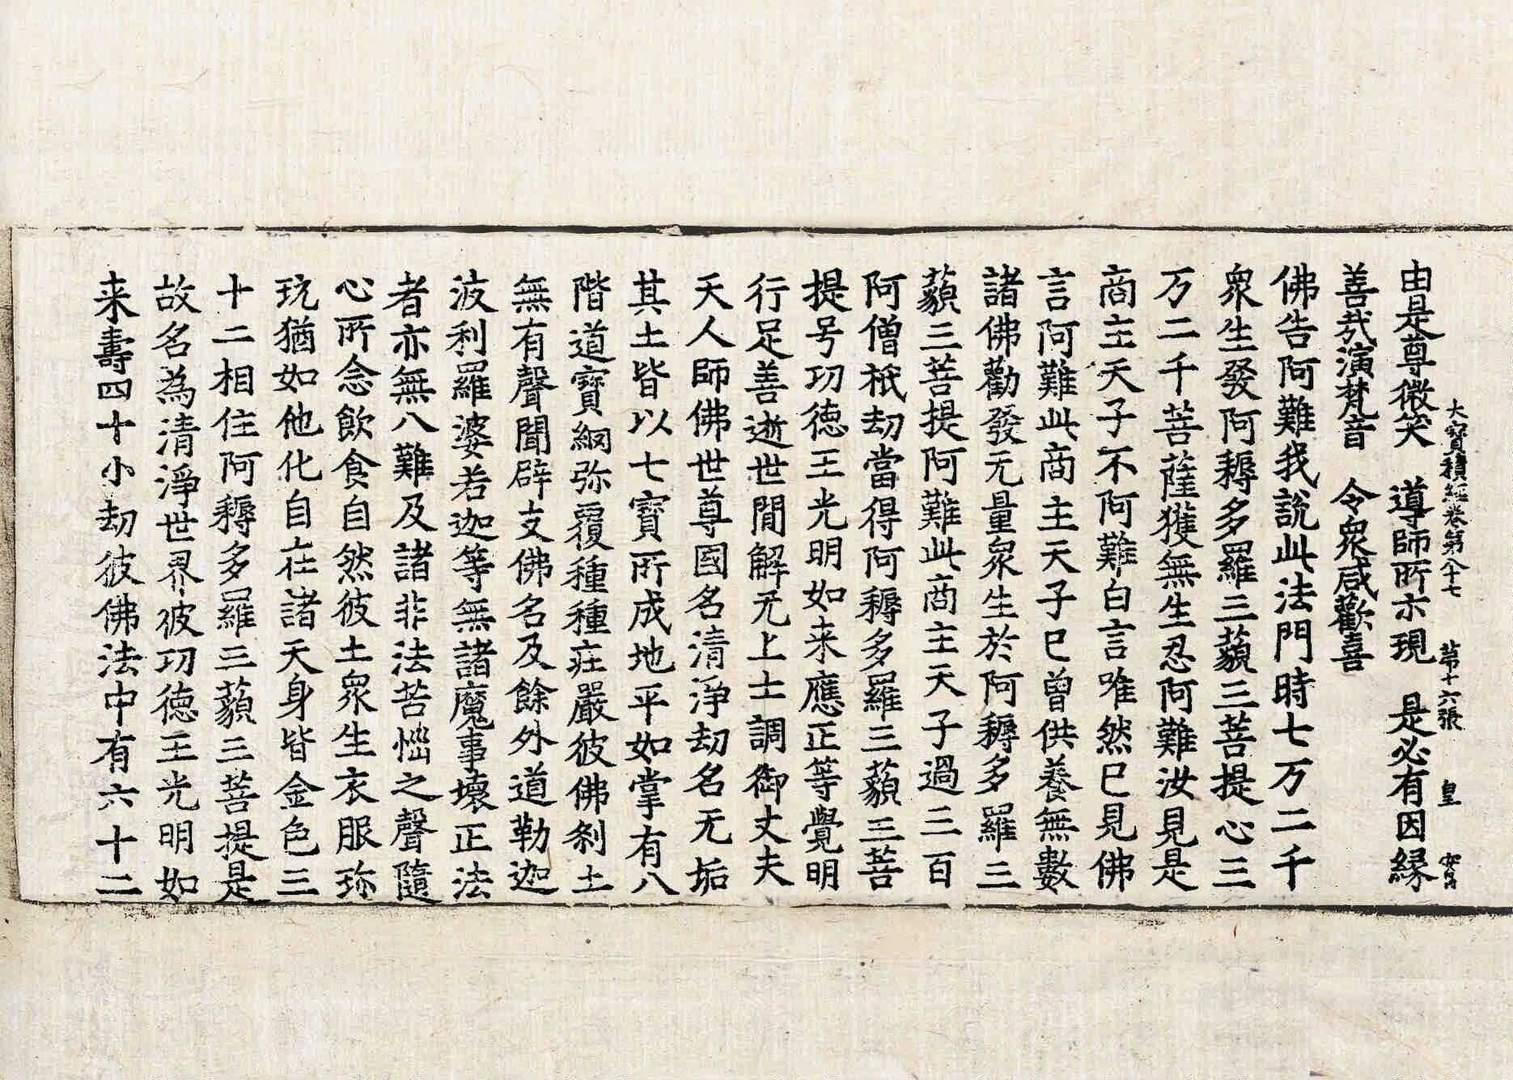 大寶積經卷第八十七　第十六張　皇
由是尊微笑　導師所示現　是必有因縁
善㢤演梵音　令衆咸歡喜
佛告阿難我說此法門時七万二千
衆生發阿耨多羅三藐三菩提心三
万二千菩薩獲無生忍阿難汝見是
商主天子不阿難白言唯然已見佛
言阿難此商主天子已曾供養無數
諸佛勸發无量衆生於阿耨多羅三
藐三菩提阿難此商主天子過三百
阿僧祇劫當得阿耨多羅三藐三菩
提号功德王光明如来應正等覺明
行足善逝世間解无上士調御丈夫
天人師佛世尊國名清淨劫名无垢
其土皆以七寶所成地平如掌有八
階道寶網弥覆種種莊嚴彼佛刹土
無有聲聞辟支佛名及餘外道勒迦
波利羅婆若迦等無諸魔事壞正法
者亦無八難及諸非法苦惱之聲隨
心所念飲食自然彼土衆生衣服珎
玩猶如他化自在諸天身皆金色三
十二相住阿耨多羅三藐三菩提是
故名為清淨世界彼功德王光明如
来壽四十小劫彼佛法中有六十二